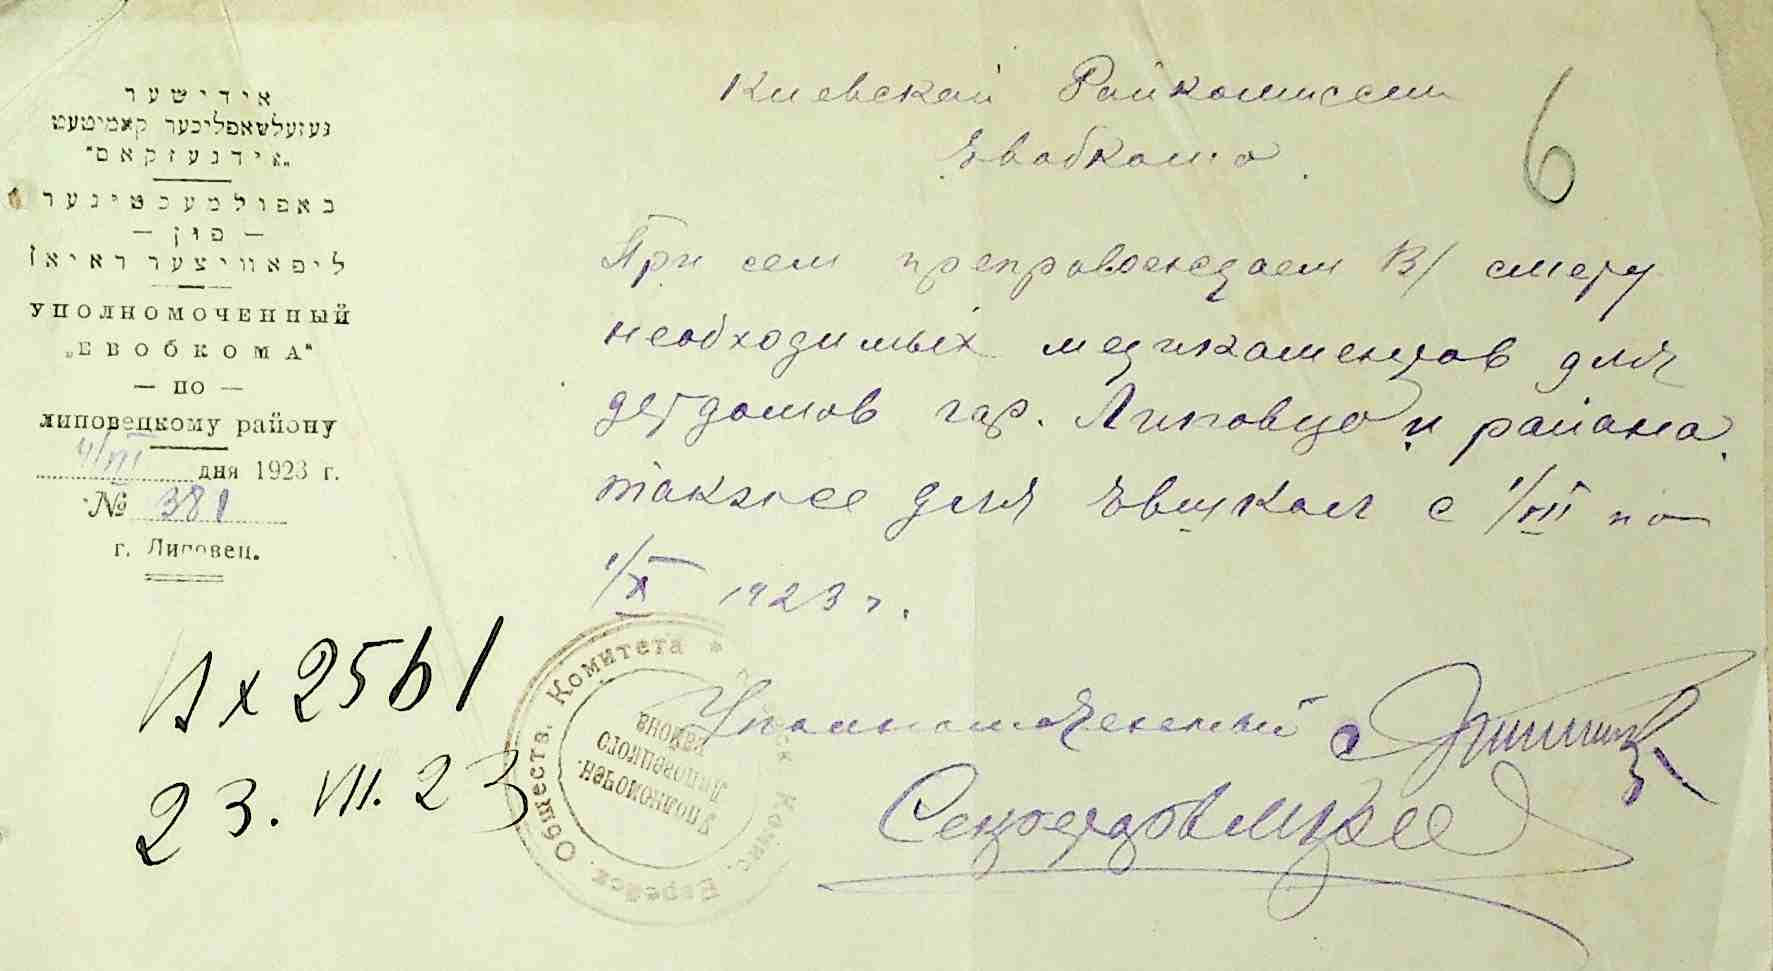 אידישער
געזעלשאפליכער קאמיטעט
„אידגעזקאם"
באפולמעכטיגער
— פון —
ליפאוויצער ראיאן
УПОЛНОМОЧЕННЫЙ
„ЕВОБКОМА"
— ПО —
липовецкому району
4/VII дня 1923 г.
№ 381
г. Липовец.
Киевской Райкомиссии
Евобкома
6
При сем препровождаем В/ смету
необходимых медикаментов для
детдомов гор. Липовца и района
также для Евшкол с 1/VII по
1/X 1923 г.
Уполномоченный
Вх 2561
23.VII.23
Еврейск. Обществ. Комитета *
Уполномочен.
Липовецкого
района